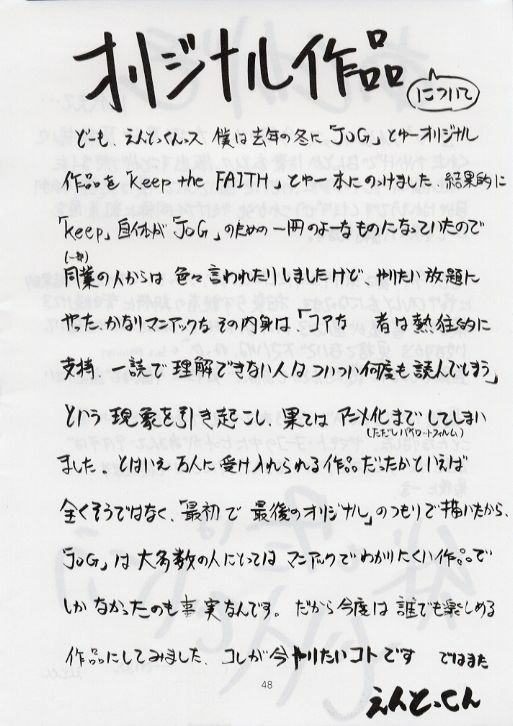 オリジナル作品
について
どーも、えんどっくんっス 僕は去年の冬に「JoG」とゆーオリジナル
作品を「Keep the FAITH」とゆー本にのっけました、結果的に
「Keep」自体が「JoG」のための一冊のよーなものになっていたので
(一部)
同業の人からは 色々言われたりしましたけど、やりたい放題に
やった、かなりマニアックな その内身は、「コアな 者は熱狂的に
支持、一読で理解できない人はついつい何度も読んでしまう」
という 現象を引き起こし、果ては アニメ化まで してしまい
(ただしパイロットフィルム)
ました。とはいえ万人に受け入れられる作品だったかといえば
全くそうではなく、「最初で最後のオリジナル」のつもりで描いたから、
「JoG」は大多数の人にとっては マニアックでわかりにくい作品で
しか なかったのも事実なんです。だから今度は 誰でも楽しめる
作品にしてみました、コレが今やりたいコトです ではまた
48